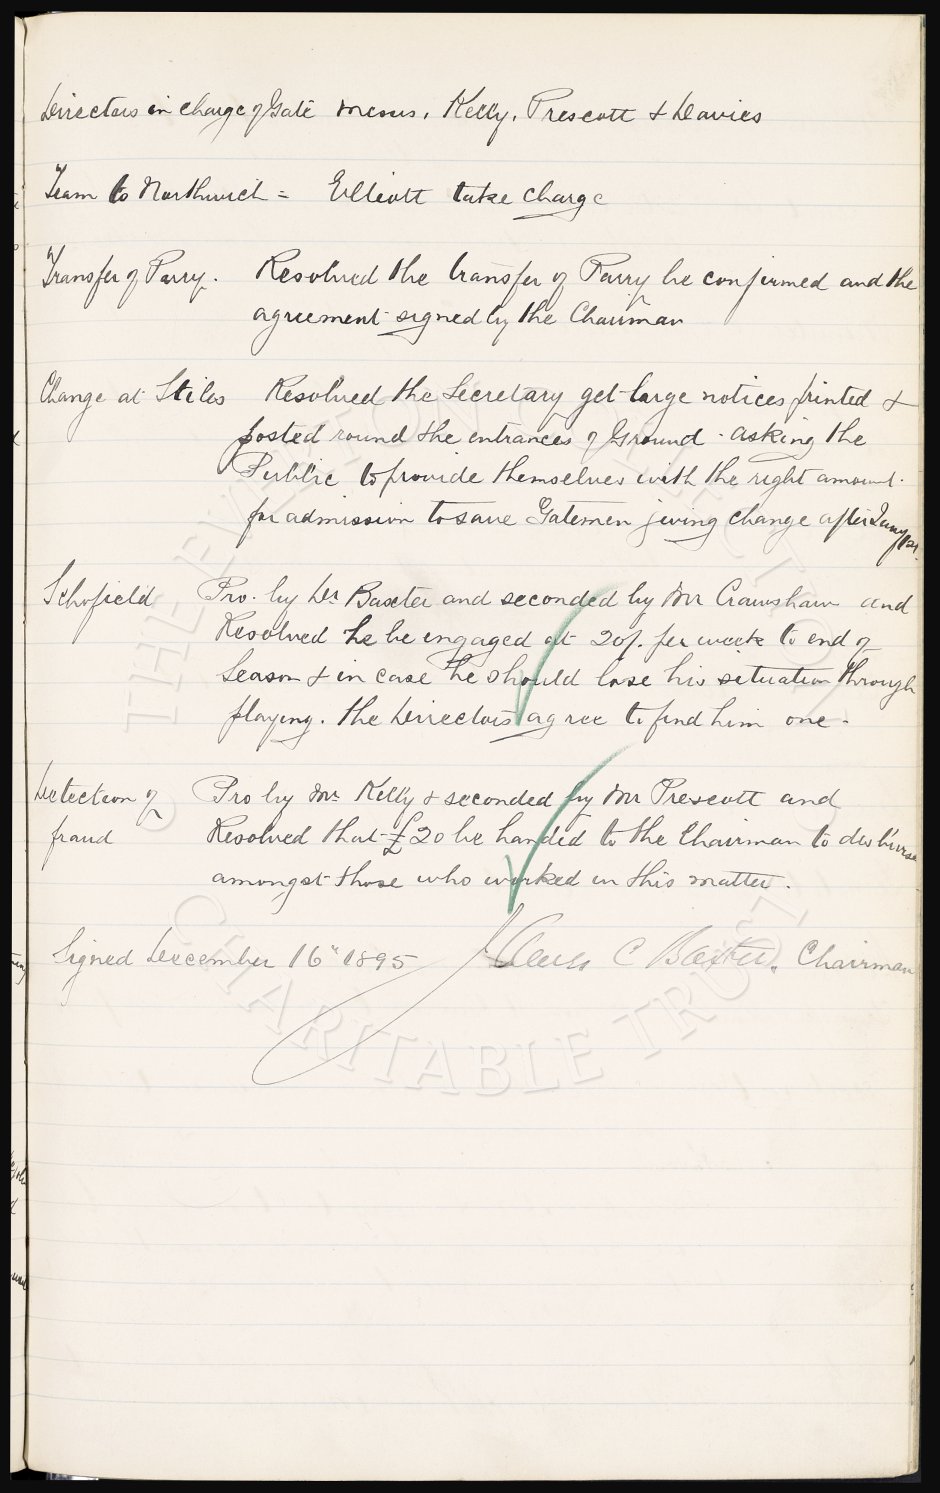 Directors in charge of Gate Messrs. Kelly, Prescott & Davies
Team to Northwich = Elliott take charge
Transfer of Parry. Resolved the transfer of Parry be confirmed and the
agreement signed by the Chairman
Change at Stiles Resolved the Secretary get large notices printed &
posted round the entrances of Ground - asking the
Public to provide themselves with the right amount
for admission to save Gatemen giving change after Jany 1st.
Schofield Pro. by Dr Baxter and seconded by Mr Crawshaw and
Resolved he be engaged at 20/. per week to end of
Season & in case he should lose his situation through
playing. the Directors agree to find him one.
Detection of Pro by Mr. Kelly & seconded by Mr Prescott and
fraud Resolved that £20 be handed to the Chairman to disburse
amongst those who worked in this matter.
Signed December 16th 1895 James C Baxter. Chairman
© THE EVERTON COLLECTION
CHARITABLE TRUST